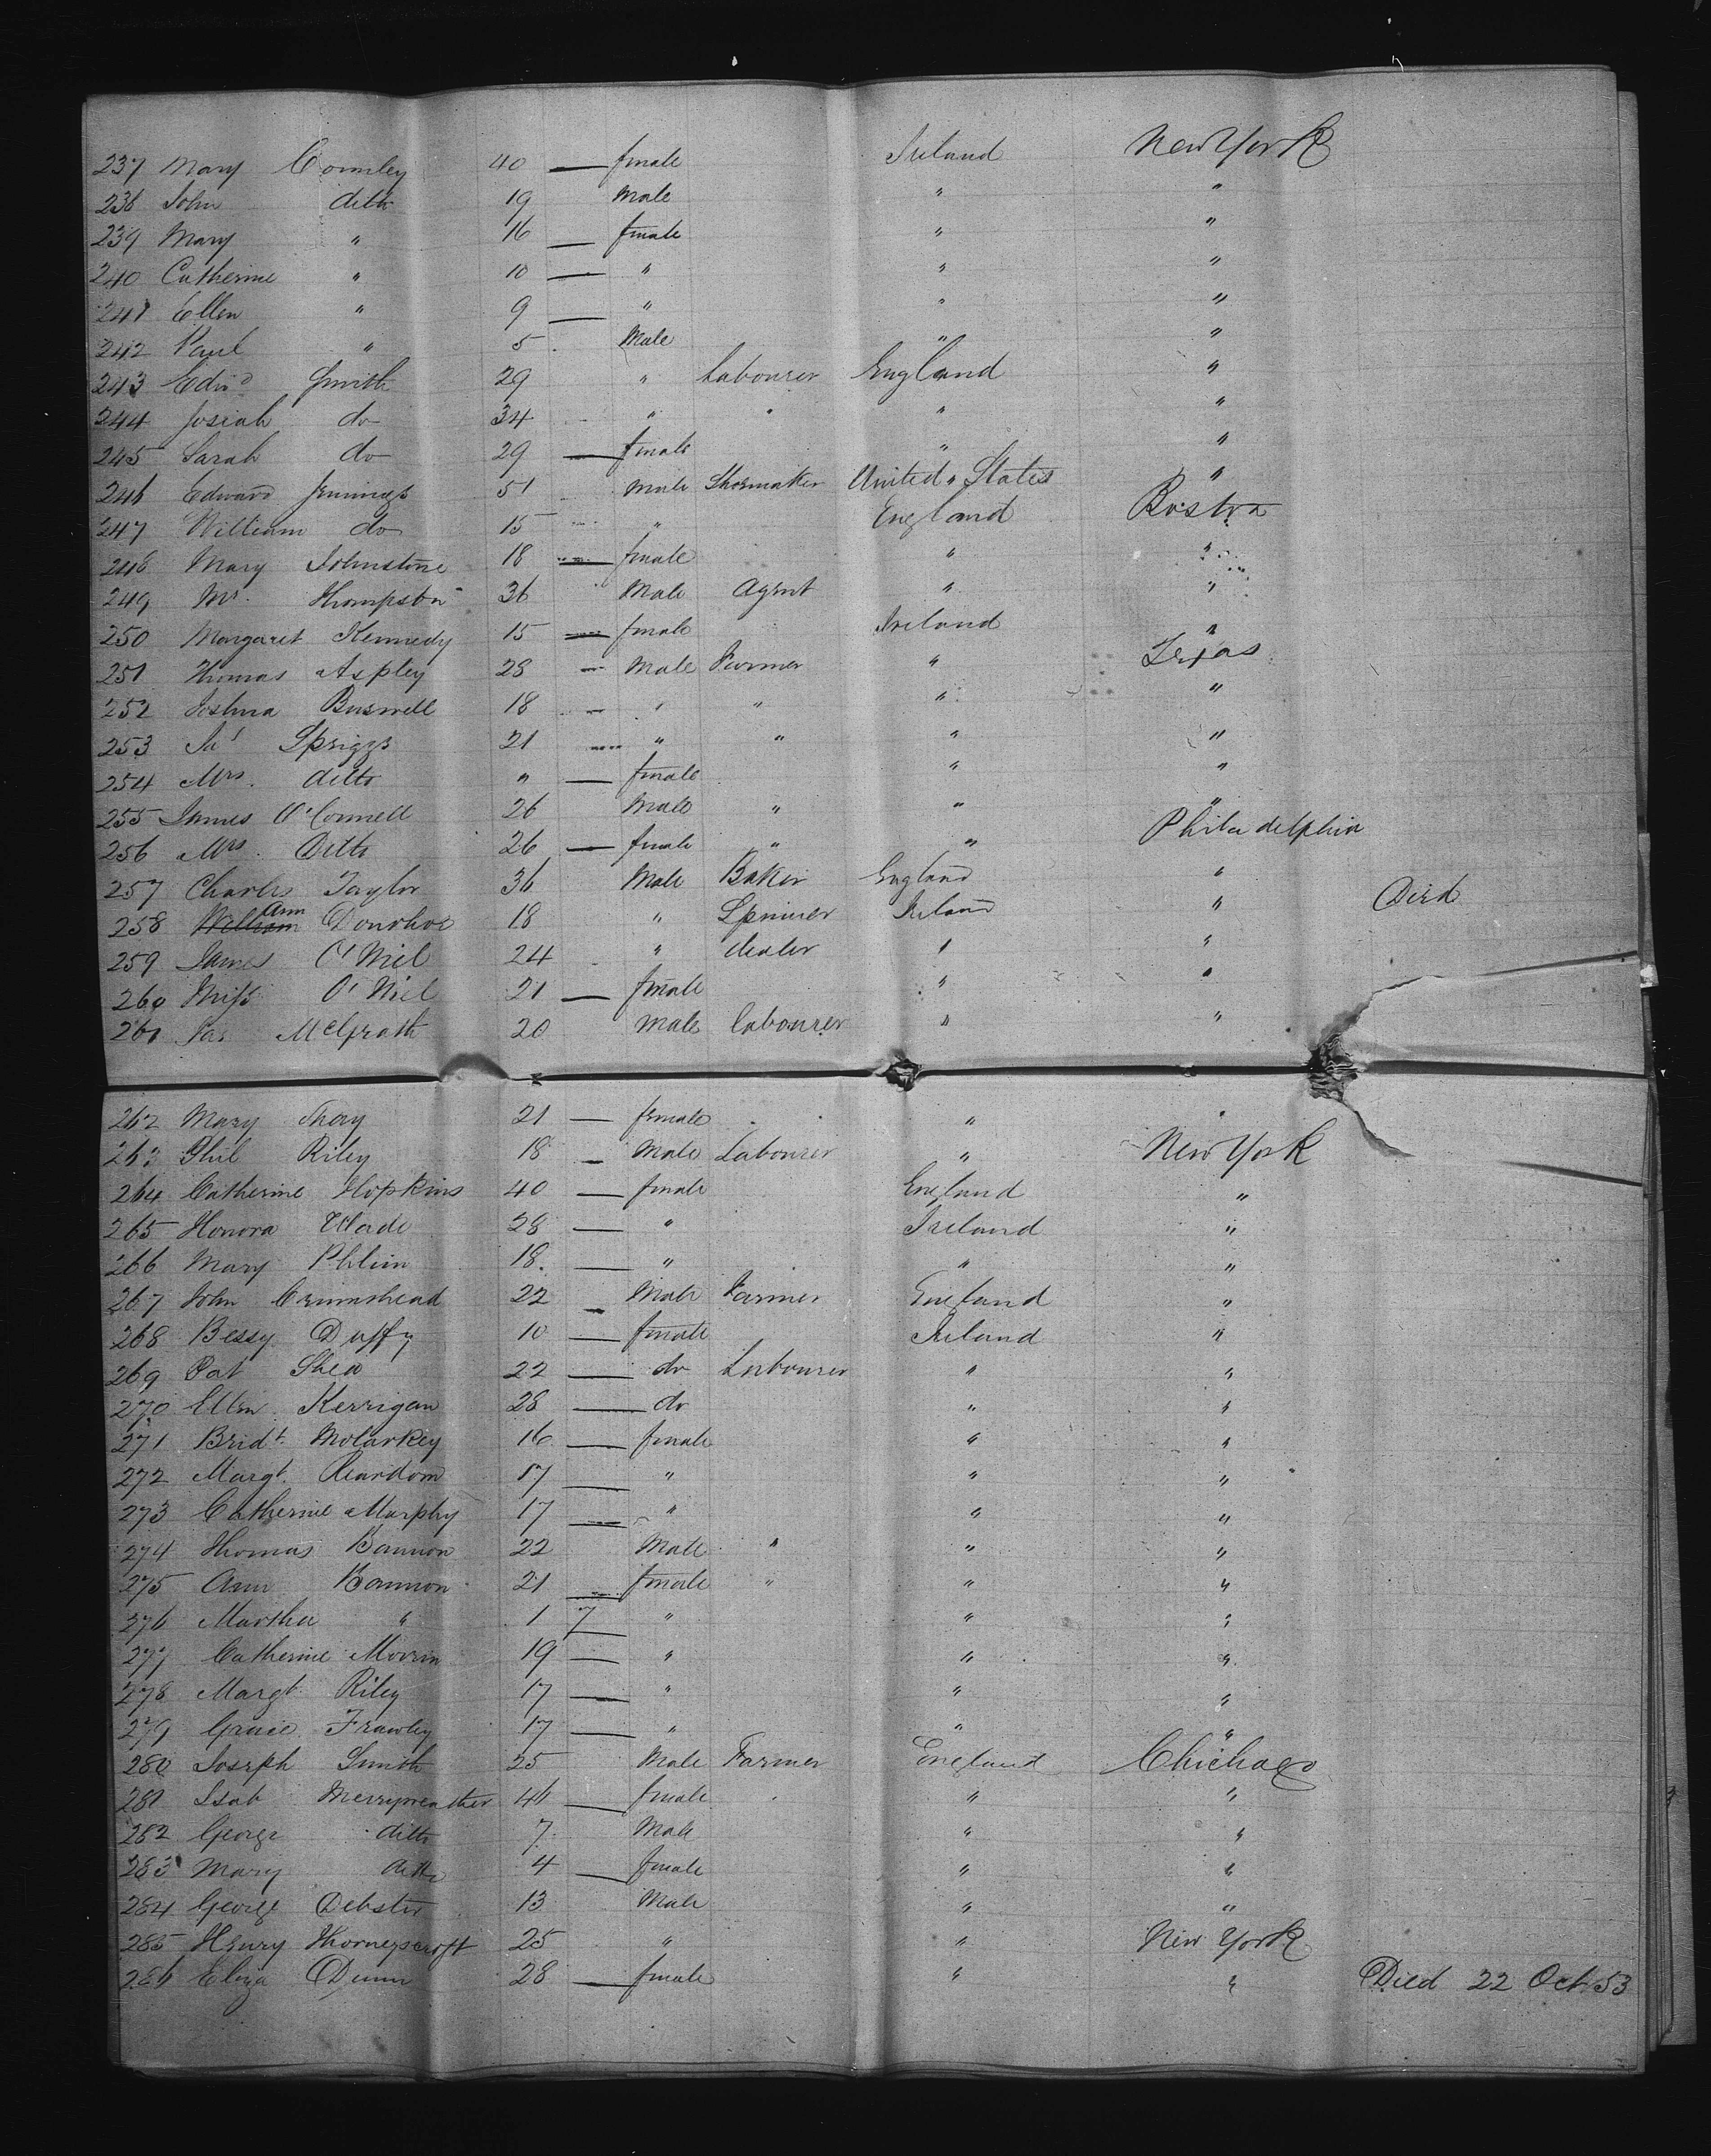 237 Mary Comley 40 — female Ireland New York
238 John ditto 19 Male " "
239 Mary " 16 — female " "
240 Catherine " 10 — " " "
241 Ellen " 9 — " " "
242 Paul " 5 Male " "
243 Edwd Smith 29 " Labourer England "
244 Josiah do 34 " " " "
245 Sarah do 29 — female " "
246 Edward Jennings 51 male Shoemaker United States "
247 William do 15 " England Boston
248 Mary Johnstone 18 — female " "
249 Mr. Thompston 36 Male Agent " "
250 Margaret Kennedy 15 — female Ireland "
251 Thomas Aspley 28 — Male Farmer " Texas
252 Joshua Buswell 18 — " " " "
253 Spriggs 21 " " " "
254 Mrs. ditto " — female " "
255 James O'Connell 26 Male " " "
256 Mrs. Ditto 26 — female " " Philadelphia
257 Charles Taylor 36 Male Baker England "
258 William Ann Donohoe 18 " Spinner Ireland " Died
259 James O'Niel 24 " dealer " "
260 Miss O'Niel 21 — female " "
261 Jas McGrath 20 male labourer " "
262 Mary 21 — female " "
263 Phil Riley 18 — Male Labourer " New York
264 Catherine Hopkins 40 — female England "
265 Honora Wade 28 — " Ireland "
266 Mary Phlim 18. — " " "
267 John Crimshead 22 — Male Farmer England "
268 Bessy Duffy 10 — female Ireland "
269 Pat Shea 22 — do Labourer " "
270 Ellen Kerrigan 28 — do " "
271 Bridt. Molarkey 16 — female " "
272 Margt. Reardom 17 — " " "
273 Catherine Murphy 17 — " " "
274 Thomas Bannon 22 Male " " "
275 Ann Bannon 21 — female " " "
276 Martha " 1 7 — " " "
277 Catherine Morrin 19 — " " "
278 Margt. Riley 17 — " " "
279 Gracie Frawley 17 — " " "
280 Joseph Smith 25 Male Farmer England Chichago
281 Isab Merryweather 46 — female " "
282 George ditto 7 Male " "
283 Mary ditto 4 — female " "
284 George Debster 13 Male " "
285 Henry Thorneyscroft 25 " " New York
286 Eliza Dunn 28 — female " " Died 22 Oct 53